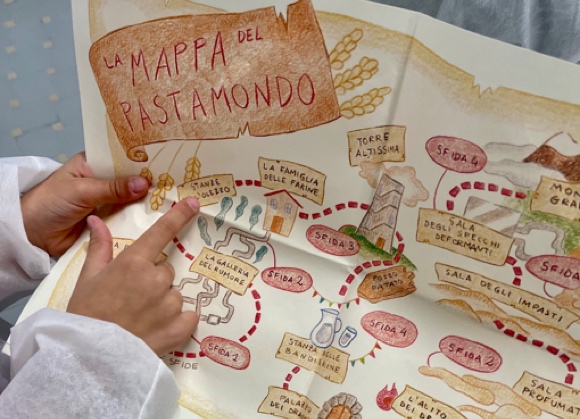 LA MAPPA DEL
PASTAMONDO
STANZE
LA FAMIGLIA
DELLE FARINE
TORRE
ALTISSIMA
SFIDA 4
SALA
DEGLI SPECCHI
DEFORMANTI
SFIDA 3
SFIDA
LA GALLERIA
DEL RUMORE
SFIDA 2
POZZO
PATATO
SALA DEGLI IMPASTI
SFIDA 4
SFIDA 1
SFIDE
STANZA DELLE
BANDIERINE
SFIDA 2
SALA
PALAZZO
L'ALITO